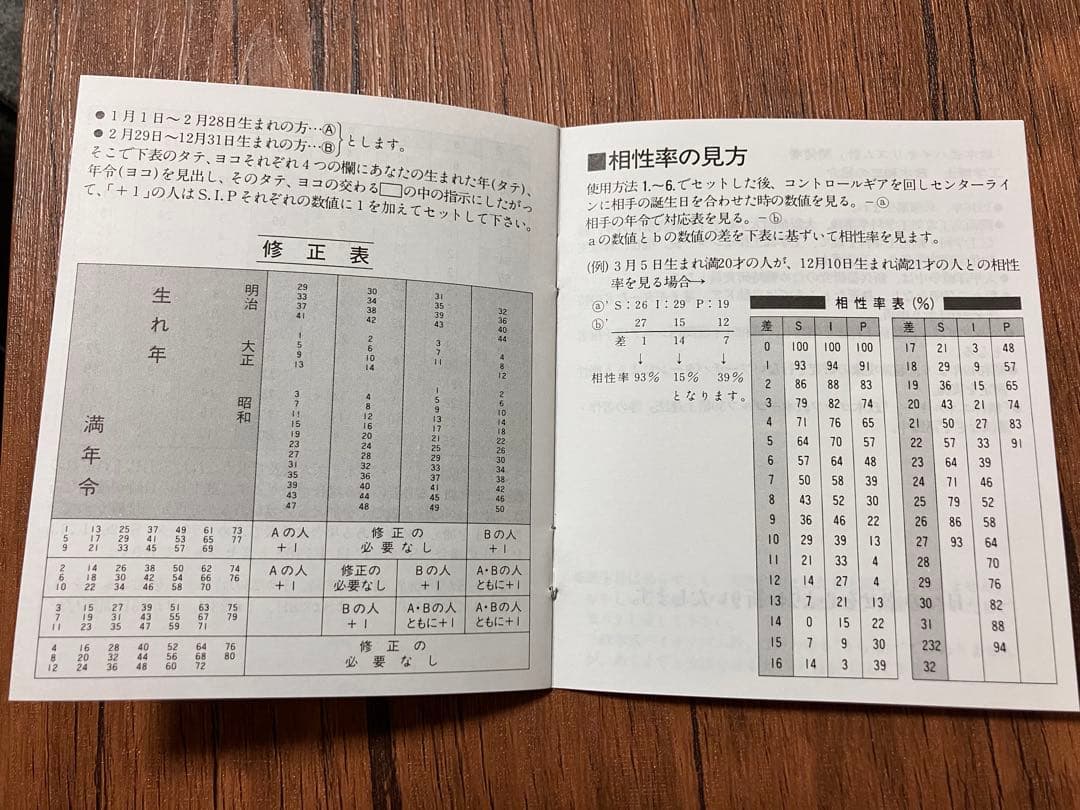 ●1月1日〜2月28日生まれの方…Ⓐ
●2月29日〜12月31日生まれの方…Ⓑ}とします。
そこで下表のタテ、ヨコそれぞれ4つの欄にあなたの生まれた年(タテ)、
年令(ヨコ)を見出し、そのタテ、ヨコの交わる□の中の指示にしたがっ
て、「+1」の人はS.I.Pそれぞれの数値に1を加えてセットして下さい。
修正表
生れ年
満年令
明治
29 30 31
33 34 35 32
37 38 39 36
41 42 43 40
44
大正
1 2 3
5 6 7 4
9 10 11 8
13 14 12
昭和
3 4 1 2
7 8 5 6
11 12 9 10
15 16 13 14
19 20 17 18
23 24 21 22
27 28 25 26
31 32 29 30
35 36 33 34
39 40 37 38
43 44 41 42
47 48 45 46
49 50
1 13 25 37 49 61 73
5 17 29 41 53 65 77
9 21 33 45 57 69
Aの人
+1
修正の
必要なし
Bの人
+1
2 14 26 38 50 62 74
6 18 30 42 54 66 76
10 22 34 46 58 70
Aの人
+1
修正の
必要なし
Bの人
+1
A・Bの人
ともに+1
3 15 27 39 51 63 75
7 19 31 43 55 67 79
11 23 35 47 59 71
Bの人
+1
A・Bの人
ともに+1
A・Bの人
ともに+1
4 16 28 40 52 64 76
8 20 32 44 56 68 80
12 24 36 48 60 72
修正の
必要なし
■相性率の見方
使用方法1.〜6.でセットした後、コントロールギアを回しセンターライ
ンに相手の誕生日を合わせた時の数値を見る。−ⓐ
相手の年令で対応表を見る。−ⓑ
aの数値とbの数値の差を下表に基ずいて相性率を見ます。
(例)3月5日生まれ満20才の人が、12月10日生まれ満21才の人との相性
率を見る場合→
ⓐ' S:26 I:29 P:19
ⓑ' 27 15 12
差 1 14 7
↓ ↓ ↓
相性率 93% 15% 39%
となります。
相性率表(%)
差 S I P 差 S I P
0 100 100 100 17 21 3 48
1 93 94 91 18 29 9 57
2 86 88 83 19 36 15 65
3 79 82 74 20 43 21 74
4 71 76 65 21 50 27 83
5 64 70 57 22 57 33 91
6 57 64 48 23 64 39
7 50 58 39 24 71 46
8 43 52 30 25 79 52
9 36 46 22 26 86 58
10 29 39 13 27 93 64
11 21 33 4 28 70
12 14 27 4 29 76
13 7 21 13 30 82
14 0 15 22 31 88
15 7 9 30 232 94
16 14 3 39 32